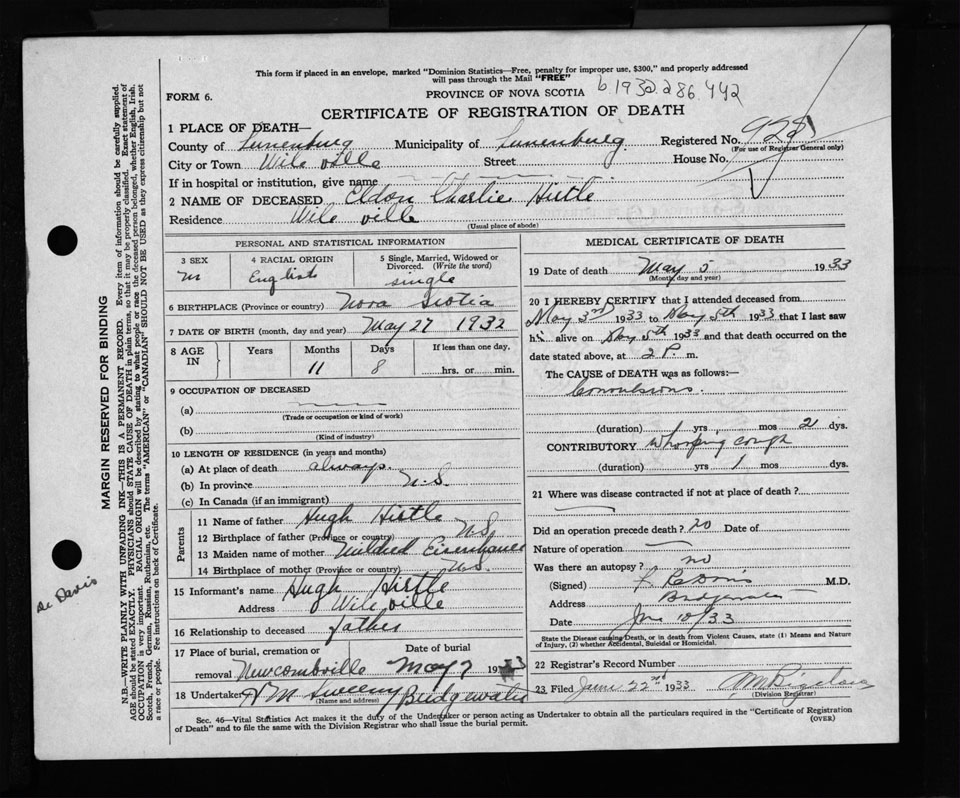 This form if placed in an envelope, marked "Dominion Statistics—Free, penalty for improper use, $300," and properly addressed
will pass through the Mail "FREE"
FORM 6.
PROVINCE OF NOVA SCOTIA
b.1932.286.442
CERTIFICATE OF REGISTRATION OF DEATH
1 PLACE OF DEATH—
County of Lunenburg Municipality of Lunenburg Registered No. 928
(For use of Registrar General only)
City or Town Wile ville Street House No.
If in hospital or institution, give name
2 NAME OF DECEASED Eldon Charlie Hirtle
Residence Wile ville
(Usual place of abode)
PERSONAL AND STATISTICAL INFORMATION
3 SEX 4 RACIAL ORIGIN 5 Single, Married, Widowed or
Divorced. (Write the word)
m English single
6 BIRTHPLACE (Province or country) Nova Scotia
7 DATE OF BIRTH (month, day and year) May 27 1932
8 AGE IN Years Months Days If less than one day,
11 8 hrs. or min.
9 OCCUPATION OF DECEASED
(a)
(Trade or occupation or kind of work)
(b)
(Kind of industry)
10 LENGTH OF RESIDENCE (in years and months)
(a) At place of death always
(b) In province N.S.
(c) In Canada (if an immigrant)
Parents
11 Name of father Hugh Hirtle
12 Birthplace of father (Province or country) N S
13 Maiden name of mother Mildred Eisenhauer
14 Birthplace of mother (Province or country) N.S.
15 Informant's name Hugh Hirtle
Address Wile ville
16 Relationship to deceased father
17 Place of burial, cremation or removal Date of burial
Newcombville May 7 1933
18 Undertaker A M Sweeny Bridgewater
(Name and address)
MEDICAL CERTIFICATE OF DEATH
19 Date of death May 5 1933
(Month, day and year)
20 I HEREBY CERTIFY that I attended deceased from
May 3rd 1933 to May 5th 1933 that I last saw
him alive on May 5th 1933 and that death occurred on the
date stated above, at 2 P. m.
The CAUSE of DEATH was as follows:—
Convulsions.
(duration) yrs. mos 2 dys.
CONTRIBUTORY whooping cough
(duration) yrs 1 mos dys.
21 Where was disease contracted if not at place of death?
Did an operation precede death? no Date of
Nature of operation
Was there an autopsy? no
(Signed) M.D.
Address Bridgewater
Date June 10/33
State the Disease causing Death, or in death from Violent Causes, state (1) Means and Nature
of Injury, (2) whether Accidental, Suicidal or Homicidal.
22 Registrar's Record Number
23 Filed June 22nd 1933
(Division Registrar)
Sec. 46—Vital Statistics Act makes it the duty of the Undertaker or person acting as Undertaker to obtain all the particulars required in the "Certificate of Registration
of Death" and to file the same with the Division Registrar who shall issue the burial permit. (OVER)
MARGIN RESERVED FOR BINDING
N.B.—WRITE PLAINLY WITH UNFADING INK—THIS IS A PERMANENT RECORD. Every item of information should be carefully supplied.
AGE should be stated EXACTLY. PHYSICIANS should STATE CAUSE OF DEATH in plain terms, so that it may be properly classified. Exact statement of
OCCUPATION is very important. RACIAL ORIGIN will be described by stating to what people or race the deceased person belonged, whether English, Irish,
Scotch, French, German, Russian, Ruthenian, etc. The terms "AMERICAN" or "CANADIAN" SHOULD NOT BE USED as they express citizenship but not
a race or people. See instructions on back of Certificate.
Davis